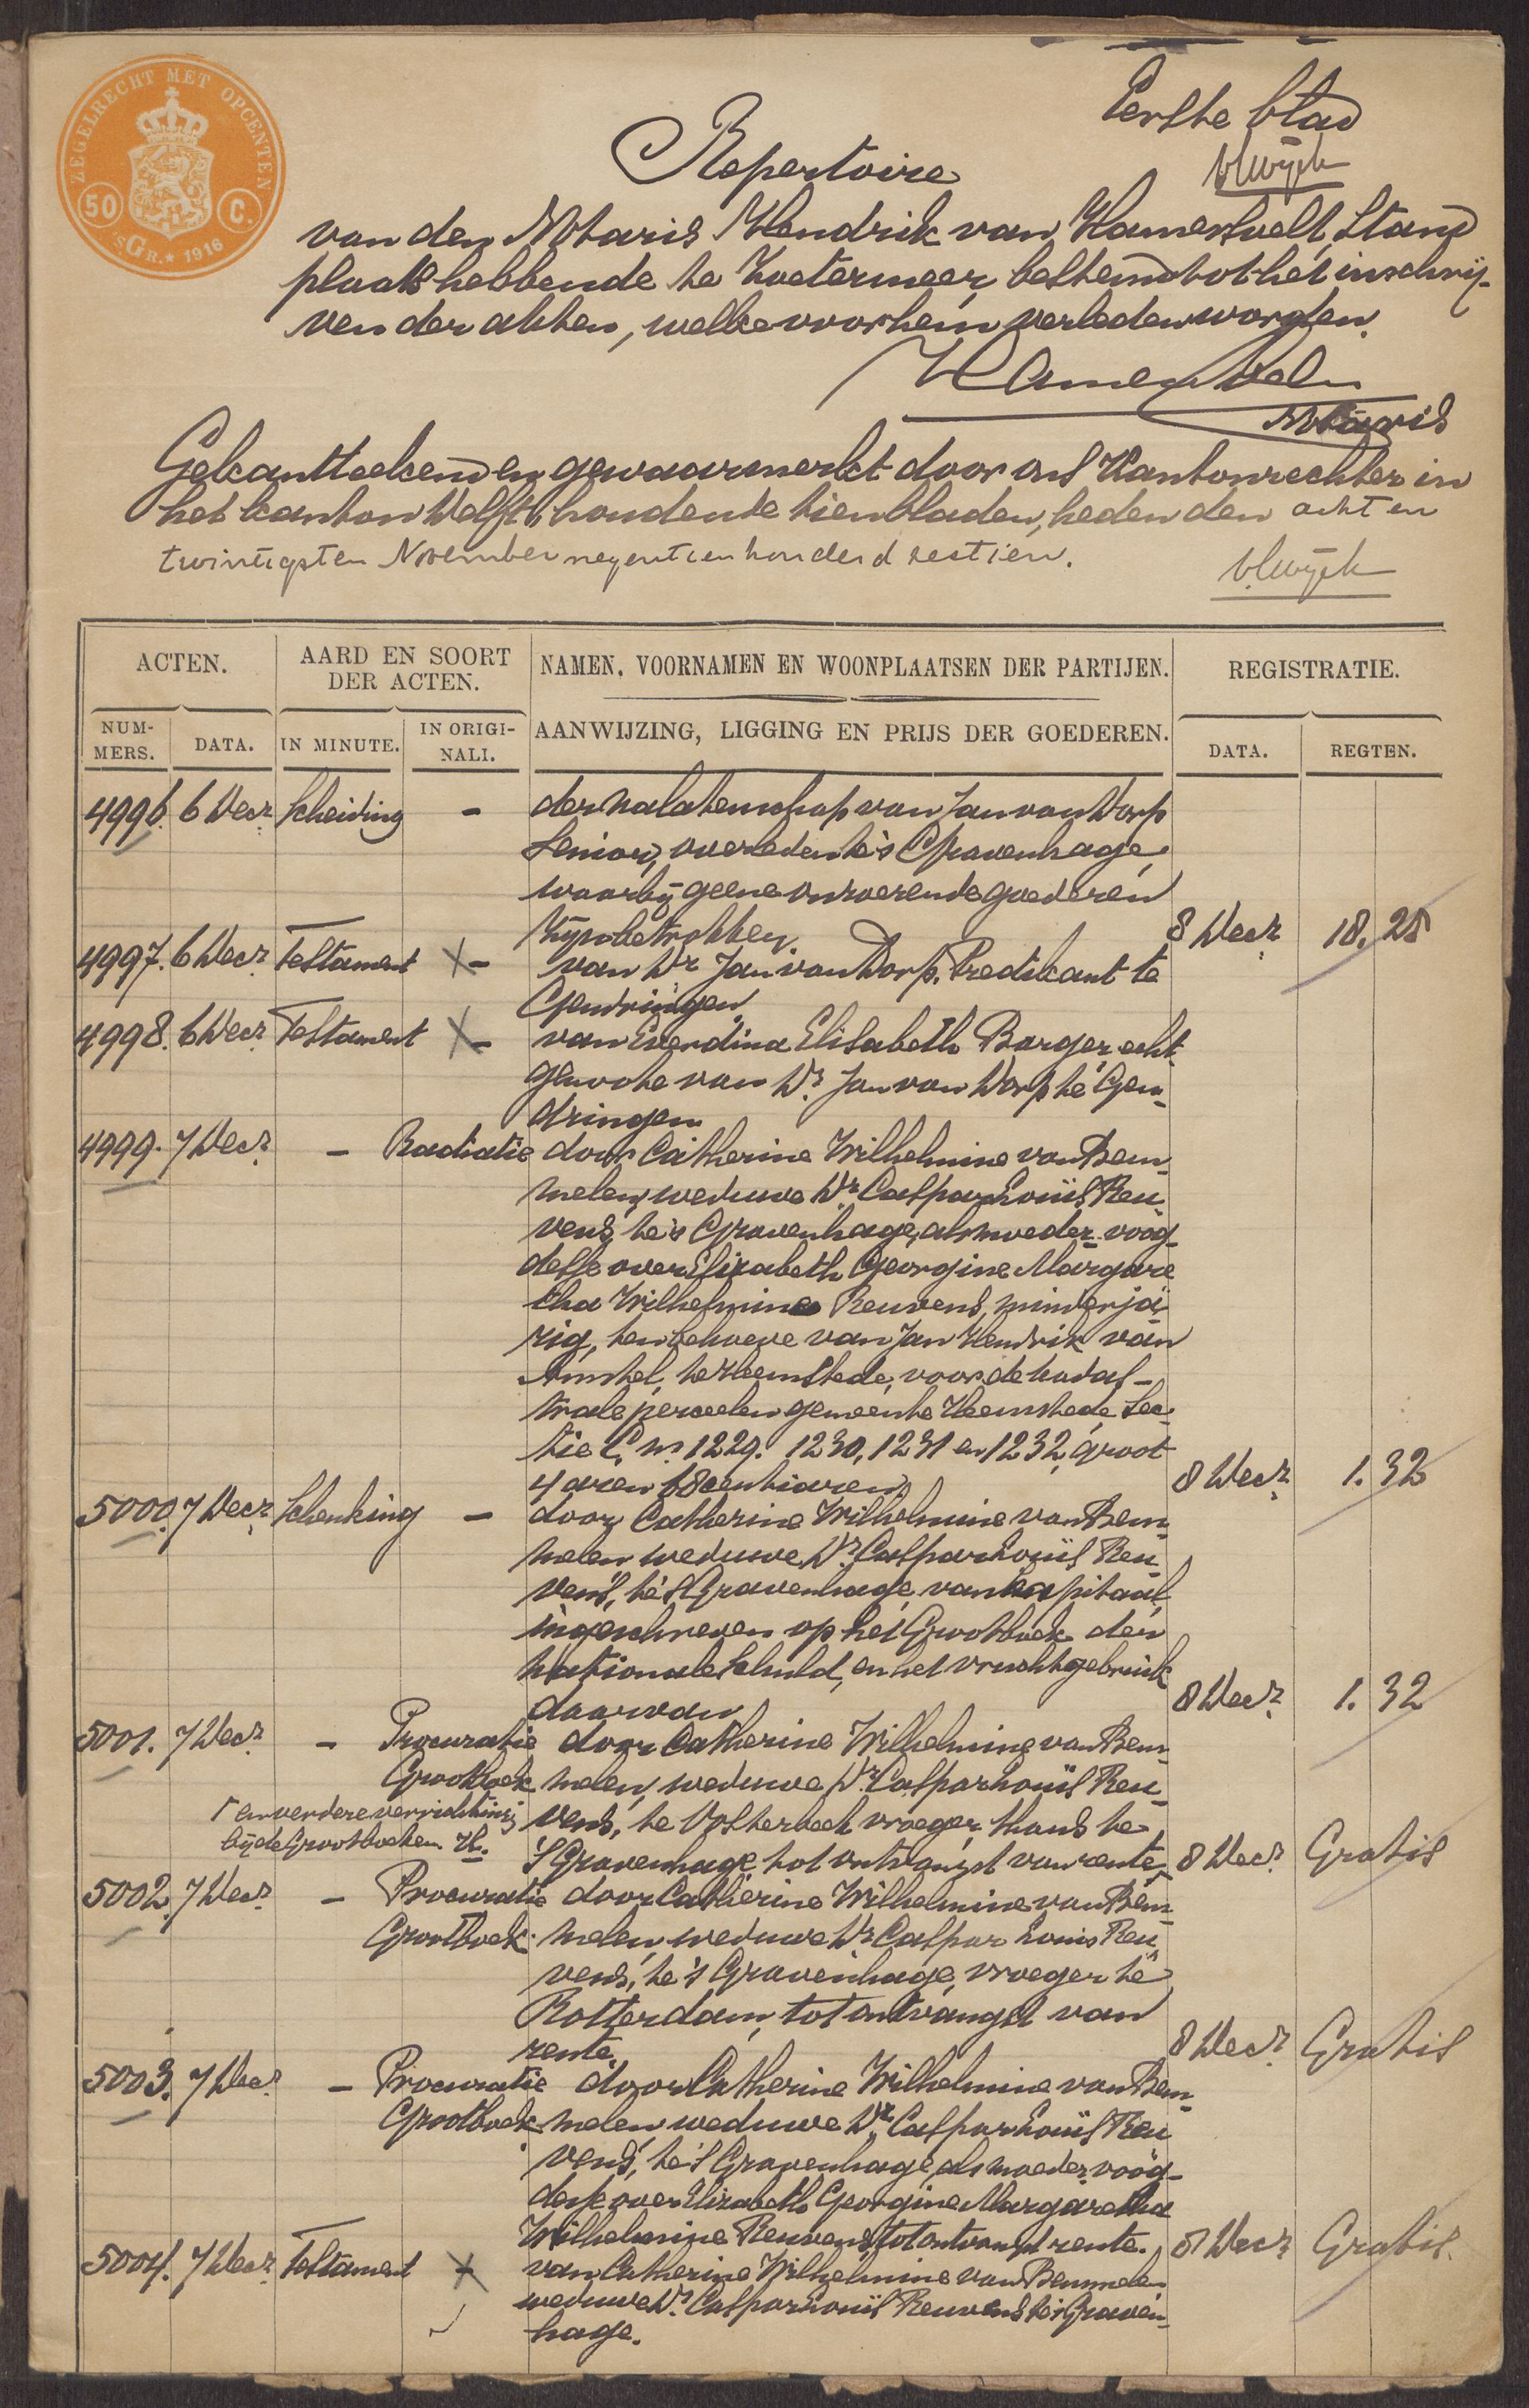 ZEGELRECHT MET OPCENTEN
50 C.
'sGR. * 1916
Eerste blad
vWijck
Repertoire
van den Notaris Hendrik van Hamersvelt, Stand
plaats hebbende te Zoetermeer, bestemd tot het inschrij-
ven der akten, welke voor hem verleden worden.
HvHamersvelt
Notaris
Gekantteekend en gewaarmerkt door ons Kantonrechter in
het kanton Delft, houdende tien bladen, heden den acht en
twintigsten November negentienhonderd zestien.
vWijck
ACTEN.
AARD EN SOORT
DER ACTEN.
NAMEN, VOORNAMEN EN WOONPLAATSEN DER PARTIJEN.
REGISTRATIE.
NUM-
MERS.
DATA.
IN MINUTE.
IN ORIGI-
NALI.
AANWIJZING, LIGGING EN PRIJS DER GOEDEREN.
DATA.
REGTEN.
4996. 6 Decr. Scheiding - der nalatenschap van Jan van Dorp
Senior, overleden te 's Gravenhage,
waarbij geene onroerende goederen
zijn betrokken. 8 Decr. 18. 28
4997. 6 Decr. Testament X - van Dr. Jan van Dorp, Predikant te
Gendringen
4998. 6 Decr. Testament X - van Everdina Elisabeth Barger, echt-
genoote van Dr. Jan van Dorp te Gen-
dringen
4999. 7 Decr. - Radiatie door Catherine Wilhelmine van Bem-
melen, weduwe Dr. Caspar Louis Reu-
vens, te 's Gravenhage, als moeder-voog-
desse over Elizabeth Georgine Margare
tha Wilhelmine Reuvens, minderja-
rig, ten behoeve van Jan Hendrik van
Amstel, te Heemstede, voor de kadas-
trale perceelen gemeente Heemstede, Sec-
tie C, nr. 1229. 1230, 1231 en 1232, groot
4 aren 18 centiaren. 8 Decr. 1. 32
5000. 7 Decr. Schenking - door Catherine Wilhelmine van Bem-
melen weduwe Dr. Caspar Louis Reu-
vens, te 's Gravenhage, van kapitaal,
ingeschreven op het Grootboek der
Nationale Schuld, en het vruchtgebruik
daarvan 8 Decr. 1. 32
5001. 7 Decr. - Procuratie door Catherine Wilhelmine van Bem-
Grootboek melen, weduwe Dr. Caspar Louis Reu-
Γ en verdere verrichting
vens, te Oosterbeek vroeger, thans te
bij de Grootboeken H.
's Gravenhage, tot ontvangst van rente Γ 8 Decr. Gratis
5002. 7 Decr. - Procuratie door Catherine Wilhelmine van Bem-
Grootboek. melen, weduwe Dr. Caspar Louis Reu
vens, te 's Gravenhage, vroeger te
Rotterdam, tot ontvangst van
rente. 8 Decr. Gratis
5003. 7 Decr. - Procuratie door Catherine Wilhelmine van Bem-
Grootboek melen weduwe Dr. Caspar Louis Reu
vens, te 's Gravenhage, als moeder-voog-
desse over Elizabeth Georgine Margaretha
Wilhelmine Reuvens, tot ontvangst rente. 8 Decr. Gratis.
5004. 7 Decr. Testament X van Catherine Wilhelmine van Bemmelen
weduwe Dr. Caspar Louis Reuvens te 's Graven-
hage.